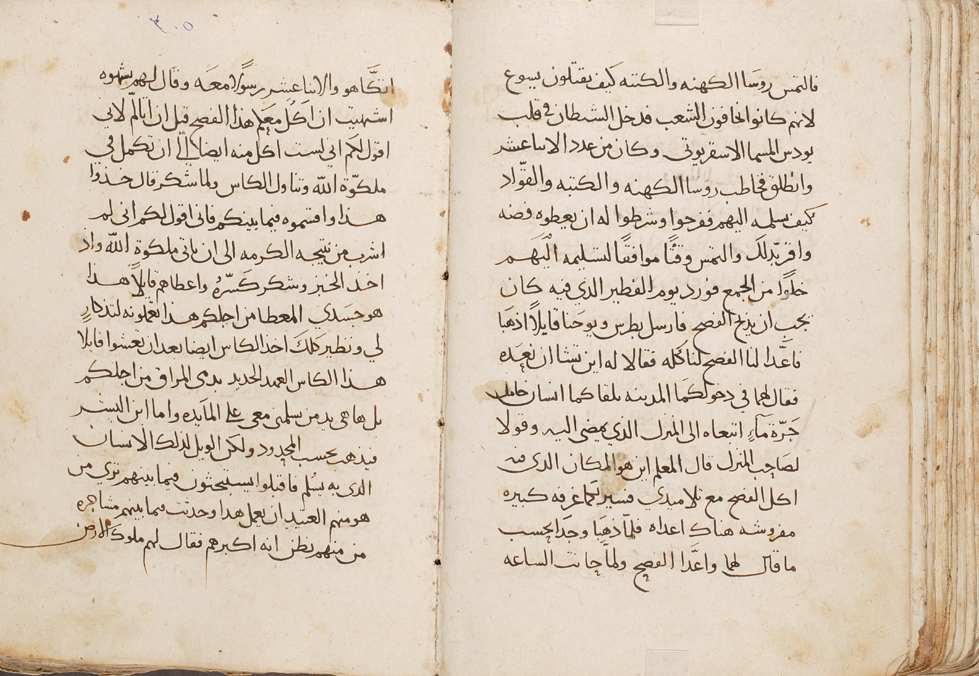 فالتمس روسا الكهنه والكتبه كيف يقتلون يسوع
لانهم كانوا يخافون الشعب فدخل الشيطان في قلب
يودس المسما الاسقريوتي وكان من عدد الاثنا عشر
وانطلق فخاطب روسا الكهنه والكتبه والقواد
كيف يسلمه اليهم ففرحوا وشرطوا له ان يعطوه فضه
واقر بذلك والتمس وقتًا موافقًا لتسليمه اليهم
خلوًا من الجمع فورد يوم الفطير الذي فيه كان
يجب ان يذبح الفصح فارسل بطرس ويوحنا قايلًا اذهبا
فاعدا لنا الفصح لناكله فقالا له اين تشا ان نعده
فقال لهما في دخولكما المدينه يلقاكما انسان حامل
جرّة مآءٍ اتبعاه الى المنزل الذي يمضي اليه وقولا
لصاحب المنزل قال المعلم اين هو المكان الذي فيه
اكل الفصح مع تلاميذي فسيريكما غرفه كبيره
مفروشه هناك اعداه فلمّا ذهبا وجدا بحسب
ما قال لهما واعدّا الفصح ولمّا حانت الساعه
اتكّا هو والاثنا عشر رسولًا معه وقال لهم بشهوه
اشتهيت ان اكل معكم هذا الفصح قبل ان اتالم لاني
اقول لكم اني لست اكل منه ايضا الى ان تكمل في
ملكوة الله وتناول الكاس ولما شكر قال خذوا
هذا واقتسموه فيما بينكم فاني اقول لكم اني لم
اشرب من نتيجه الكرمه الى ان ياتي ملكوة الله واذ
اخذ الخبز وشكر كسّره واعطاهم قايلًا هذا
هو جسدي المعطا من اجلكم هذا تعملونه لتذكارٍ
لي ونظير ذلك اخذ الكاس ايضا بعد ان تعشوا قايلا
هذا الكاس العهد الجديد بدمي المراق من اجلكم
بل ها هي يد من يسلمني معي على المايده واما ابن البشر
فيذهب بحسب المحدود ولكن الويل لذلك الانسان
الذي به يسلم فاقبلوا يستبحثون فيما بينهم ترى من
هو منهم العتيد ان يعمل هذا وحدثت فيما بينهم مشاجره
من منهم يظن انه اكبرهم فقال لهم ملوك الارض